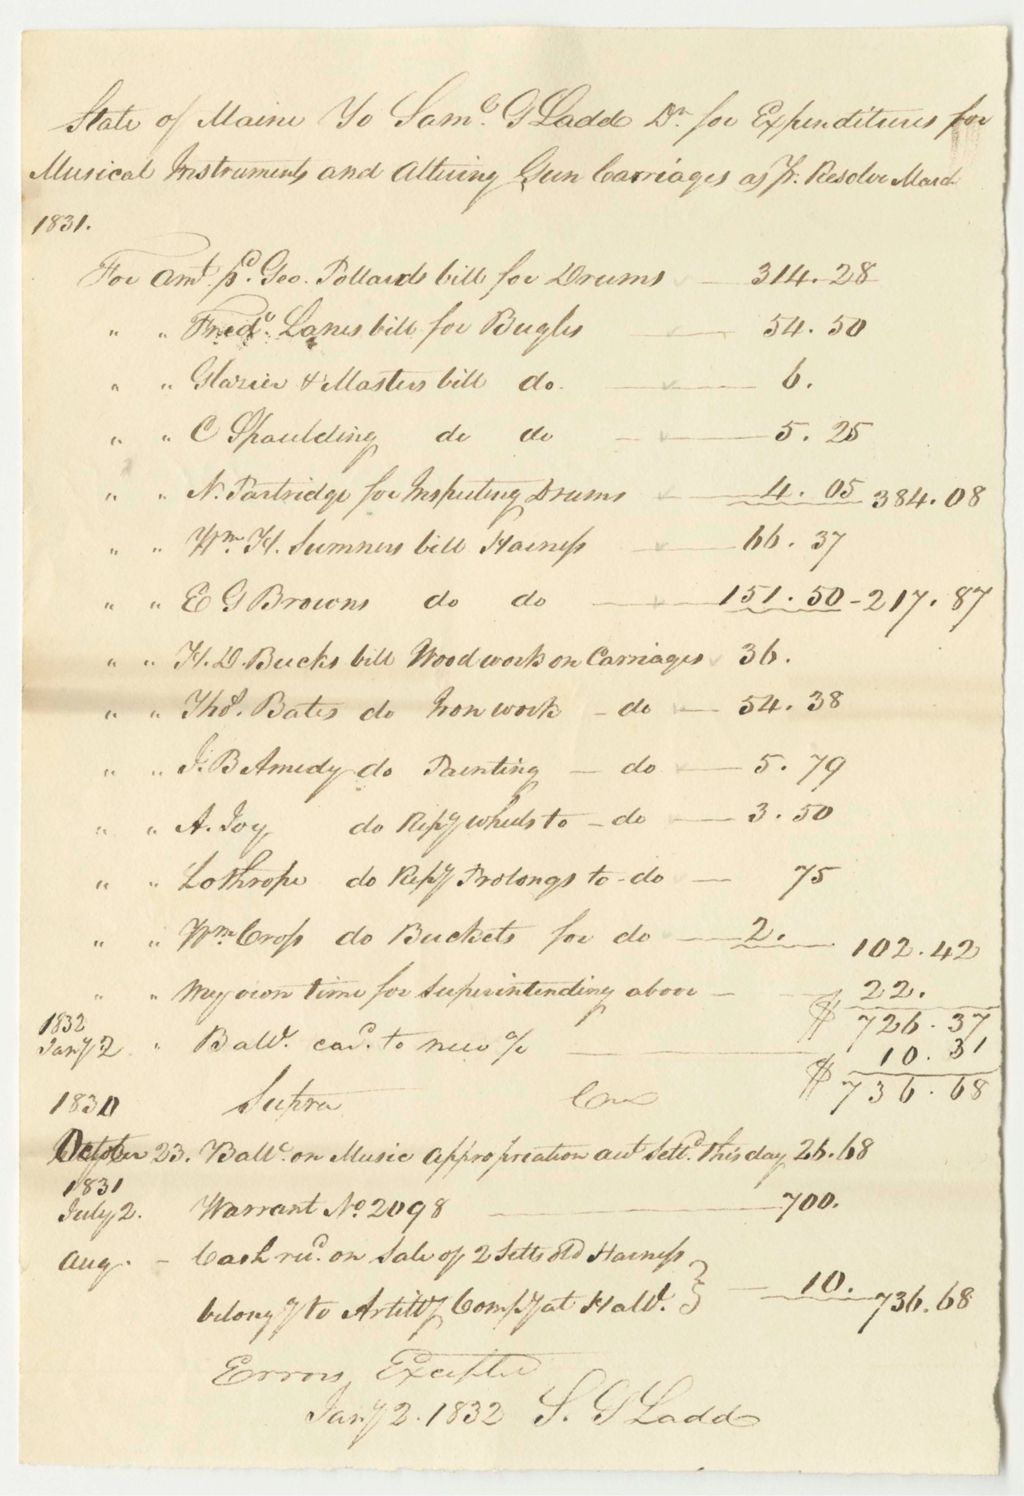 State of Maine To Saml. G Ladd Dr. for Expenditures for
Musical Instruments and altering Gun Carriages as pr. Resolve March
1831.
For amt. pd. Geo. Pollards bill for Drums — 314.28
" " Fredc. Lanes bill for Bugles — 54.50
" " Glazier & Masters bill do. — 6.
" " C Spaulding do do — 5.25
" " N. Partridge for Inspecting Drums — 4.05 384.08
" " Wm. H. Sumners bill Harness — 66.37
" " E G Browns do do — 151.50 - 217.87
" " H. D. Bucks bill Wood work on Carriages 36.
" " Thos. Bates do Iron work - do — 54.38
" " J. B Amedy do Painting — do — 5.79
" " A. Joy do Repg wheels to - do — 3.50
" " Lothrope do Repg Prolongs to - do — 75
" " Wm Cross do Buckets for do — 2. 102.42
" " My own time for Superintending above — 22.
$ 726.37
1832
Jany 2 " Balc. cad. to new % — $ 10.31
736.68
1830 Supra Cr
October 23. Balc. on Music appropriation act settd. this day 26.68
1831
July 2. Warrant No 2098 — 700.
Aug. - Cash recd. on Sale of 2 Setts old Harness
belongg to Artilly Compy at Hald. } — 10. 736.68
Errors Excepted
Jany 2. 1832 S. G Ladd